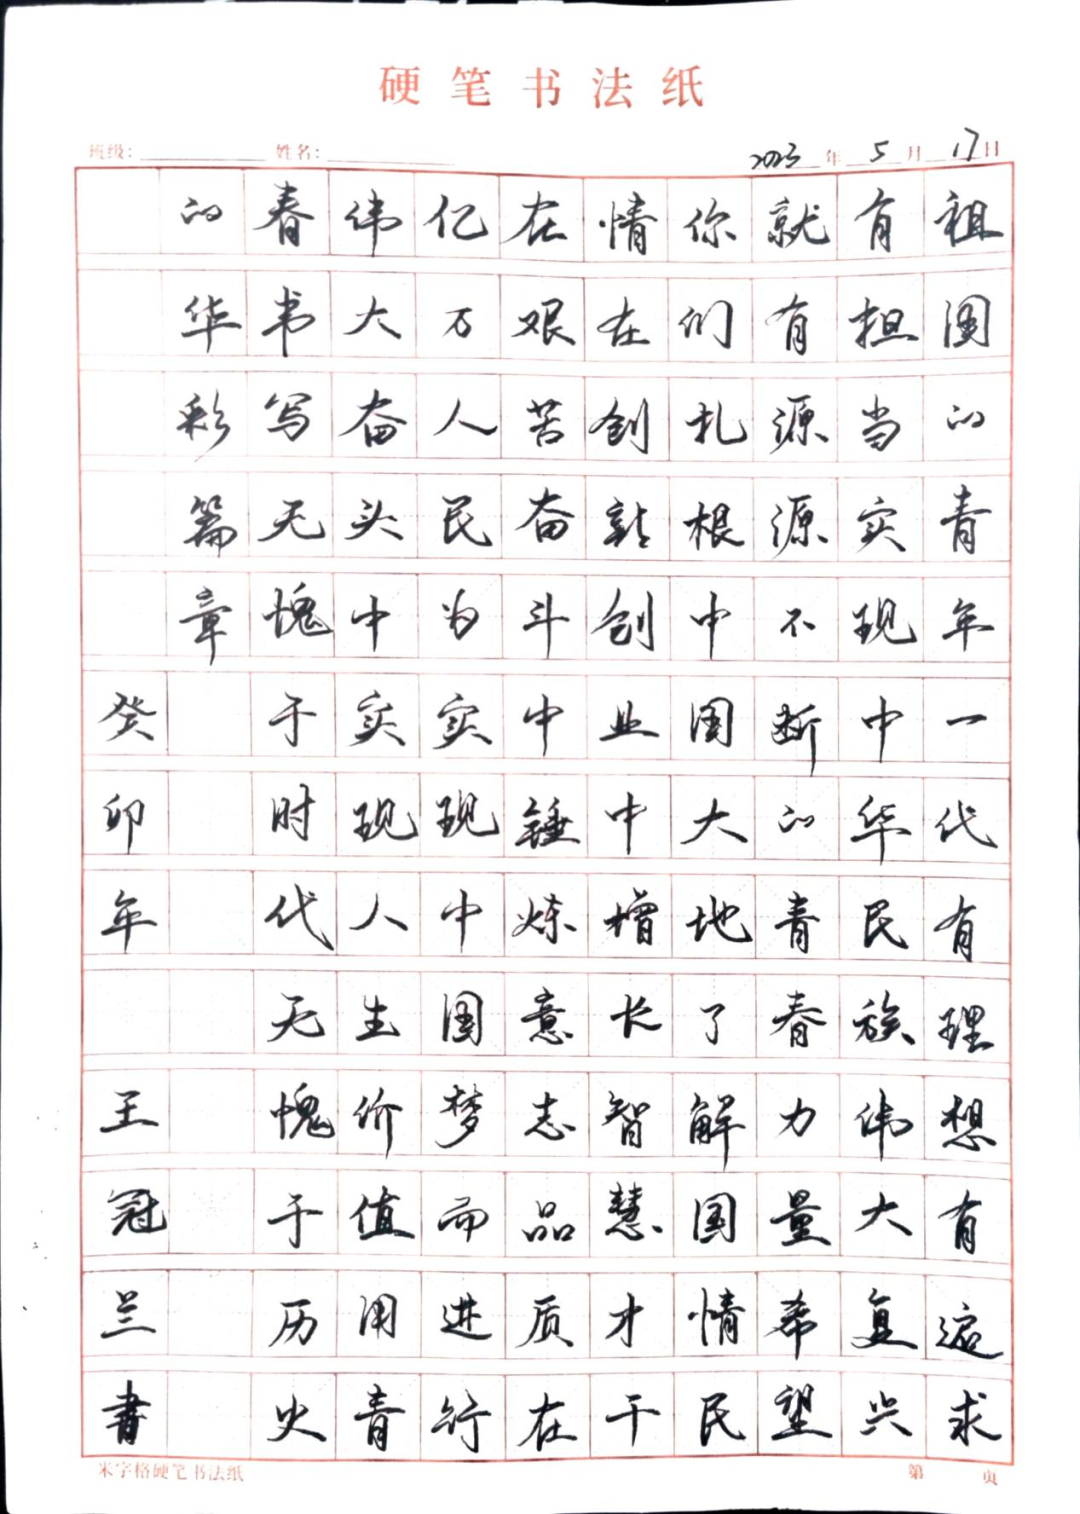 硬笔书法纸
班级： 姓名： 2023年5月17日
祖国的青年一代有理想有追求
有担当实现中华民族伟大复兴
就有源源不断的青春力量希望
你们扎根中国大地了解国情民
情在创新创业中增长智慧才干
在艰苦奋斗中锤炼意志品质在
亿万人民为实现中国梦而进行
伟大奋头中实现人生价值用青
春书写无愧于时代无愧于历史
的华彩篇章
癸卯年 王冠兰書
米字格硬笔书法纸 第 页